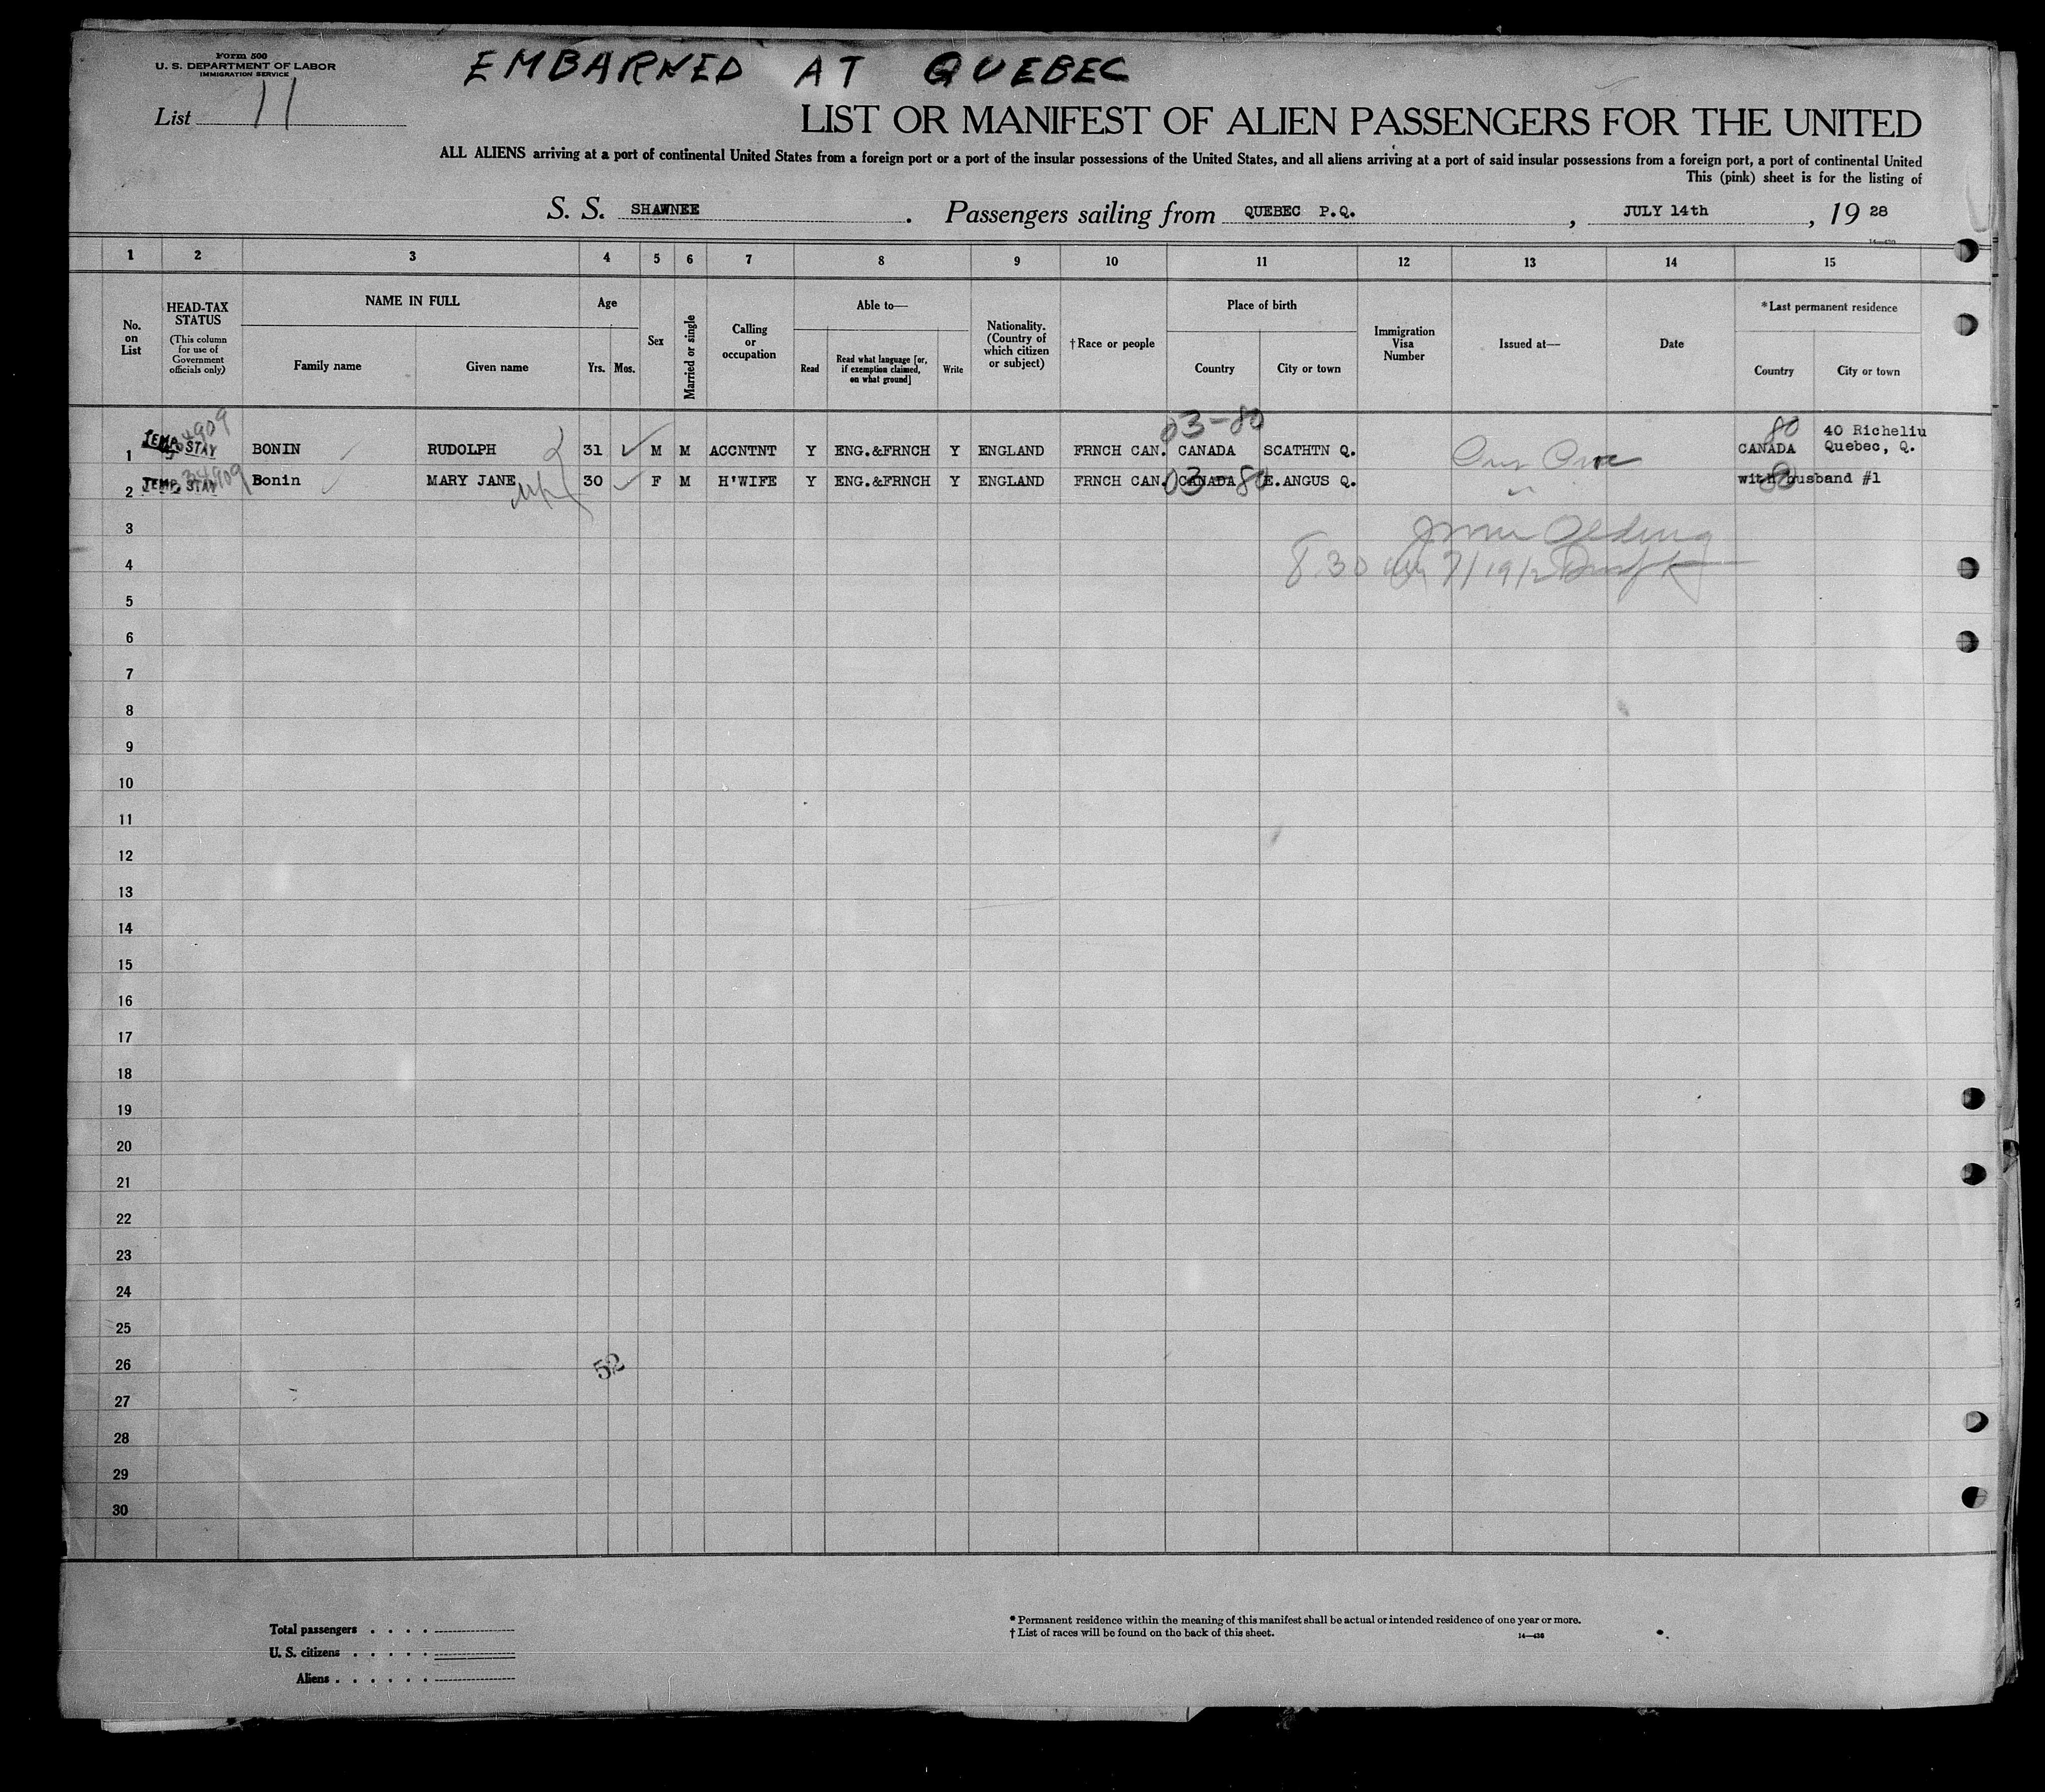 Form 500
U. S. DEPARTMENT OF LABOR
IMMIGRATION SERVICE
EMBARKED AT QUEBEC
List 11
LIST OR MANIFEST OF ALIEN PASSENGERS FOR THE UNITED
ALL ALIENS arriving at a port of continental United States from a foreign port or a port of the insular possessions of the United States, and all aliens arriving at a port of said insular possessions from a foreign port, a port of continental United
This (pink) sheet is for the listing of
S. S. SHAWNEE. Passengers sailing from QUEBEC P.Q., JULY 14th, 1928
1 2 3 4 5 6 7 8 9 10 11 12 13 14 15
No. on List
HEAD-TAX STATUS
(This column for use of Government officials only)
NAME IN FULL
Family name
Given name
Age
Yrs. Mos.
Sex
Married or single
Calling or occupation
Able to—
Read
Read what language [or, if exemption claimed, on what ground]
Write
Nationality. (Country of which citizen or subject)
†Race or people
Place of birth
Country
City or town
Immigration Visa Number
Issued at—
Date
*Last permanent residence
Country
City or town
03-80
1 TEMP. STAY 34909 BONIN RUDOLPH 31 M M ACCNTNT Y ENG.&FRNCH Y ENGLAND FRNCH CAN. CANADA SCATHTN Q. 80 CANADA 40 Richeliu Quebec, Q.
2 TEMP. STAY 34909 Bonin MARY JANE 30 F M H'WIFE Y ENG.&FRNCH Y ENGLAND FRNCH CAN. 03 CANADA 80 E.ANGUS Q. with husband #1
3
8.30
4
5
6
7
8
9
10
11
12
13
14
15
16
17
18
19
20
21
22
23
24
25
26 52
27
28
29
30
Total passengers
U. S. citizens
Aliens
* Permanent residence within the meaning of this manifest shall be actual or intended residence of one year or more.
† List of races will be found on the back of this sheet.